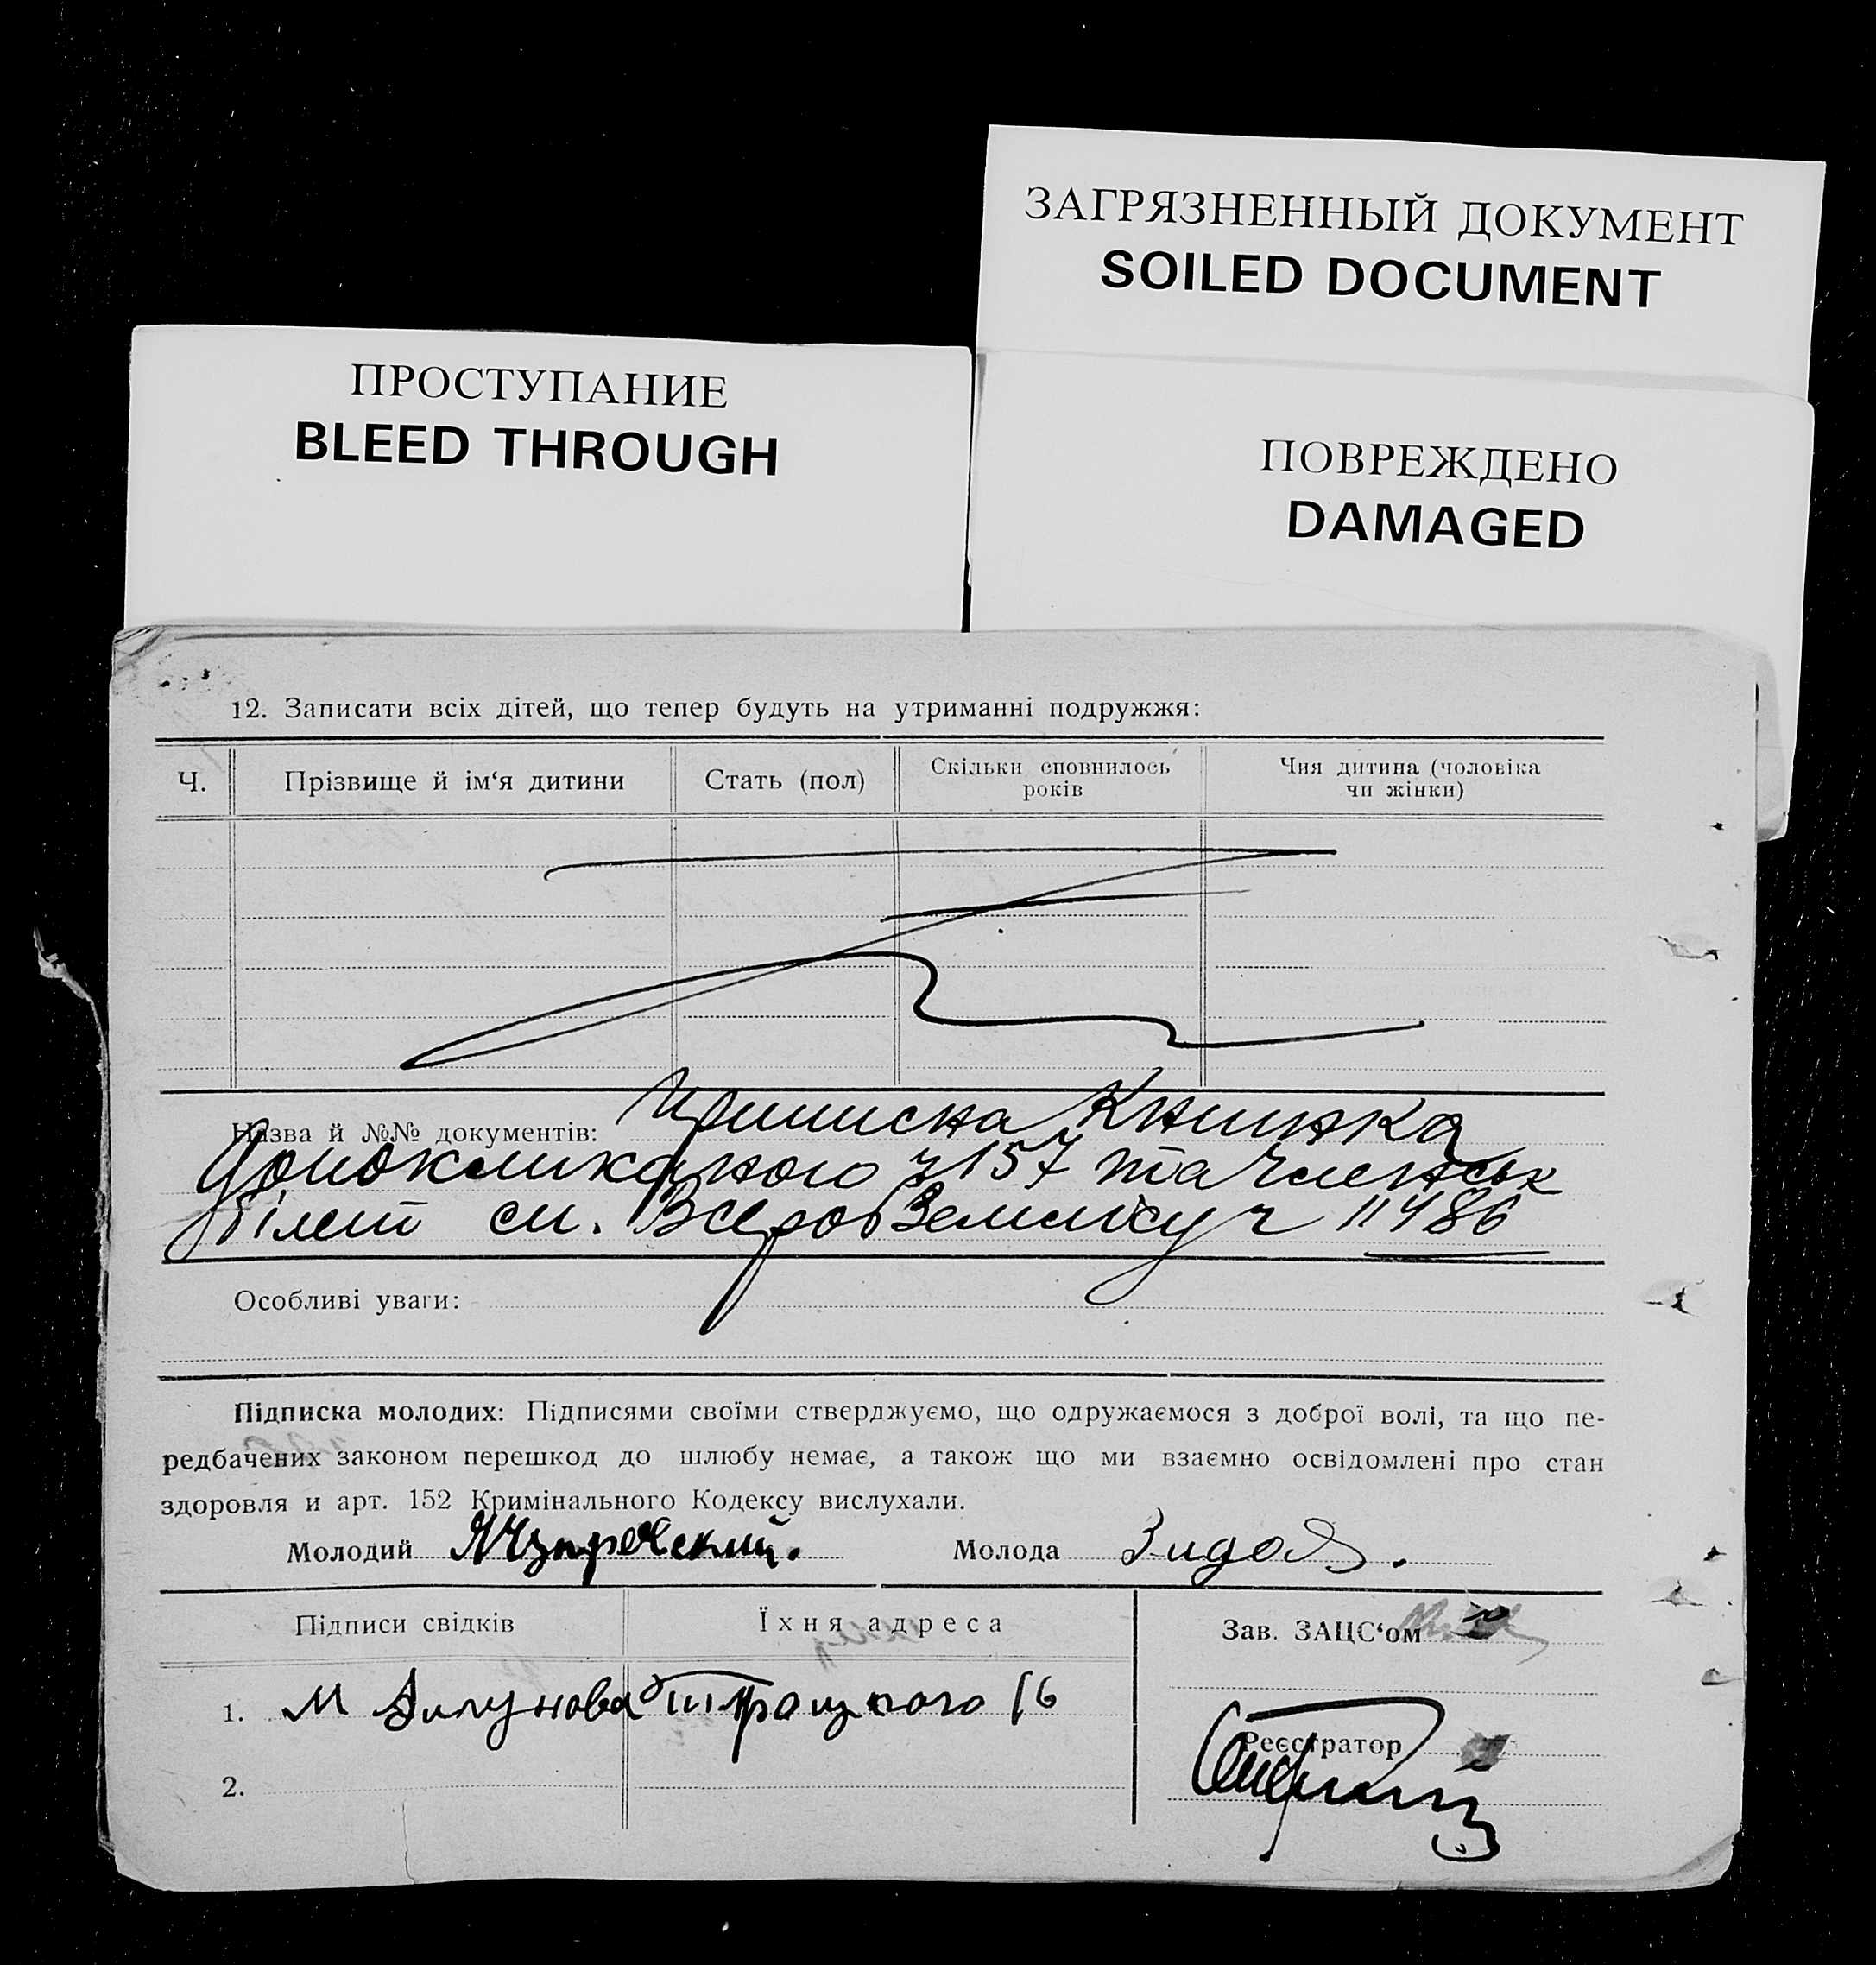 ЗАГРЯЗНЕННЫЙ ДОКУМЕНТ
SOILED DOCUMENT
ПРОСТУПАНИЕ
BLEED THROUGH
ПОВРЕЖДЕНО
DAMAGED
12. Записати всіх дітей, що тепер будуть на утриманні подружжя:
Ч. Прізвище й ім‘я дитини Стать (пол) Скільки сповнилось років Чия дитина (чоловіка чи жінки)
Назва й №№ документів: Приписна Книжка
157 та членськ
білет сп. 11486
Особливі уваги:
Підписка молодих: Підписями своїми стверджуємо, що одружаємося з доброї волі, та що пе-
редбачених законом перешкод до шлюбу немає, а також що ми взаємно освідомлені про стан
здоровля и арт. 152 Кримінального Кодексу вислухали.
Молодий Молода
Підписи свідків Їхня адреса Зав. ЗАЦС‘ом
1. М Троцкого 16
Реєстратор
2.